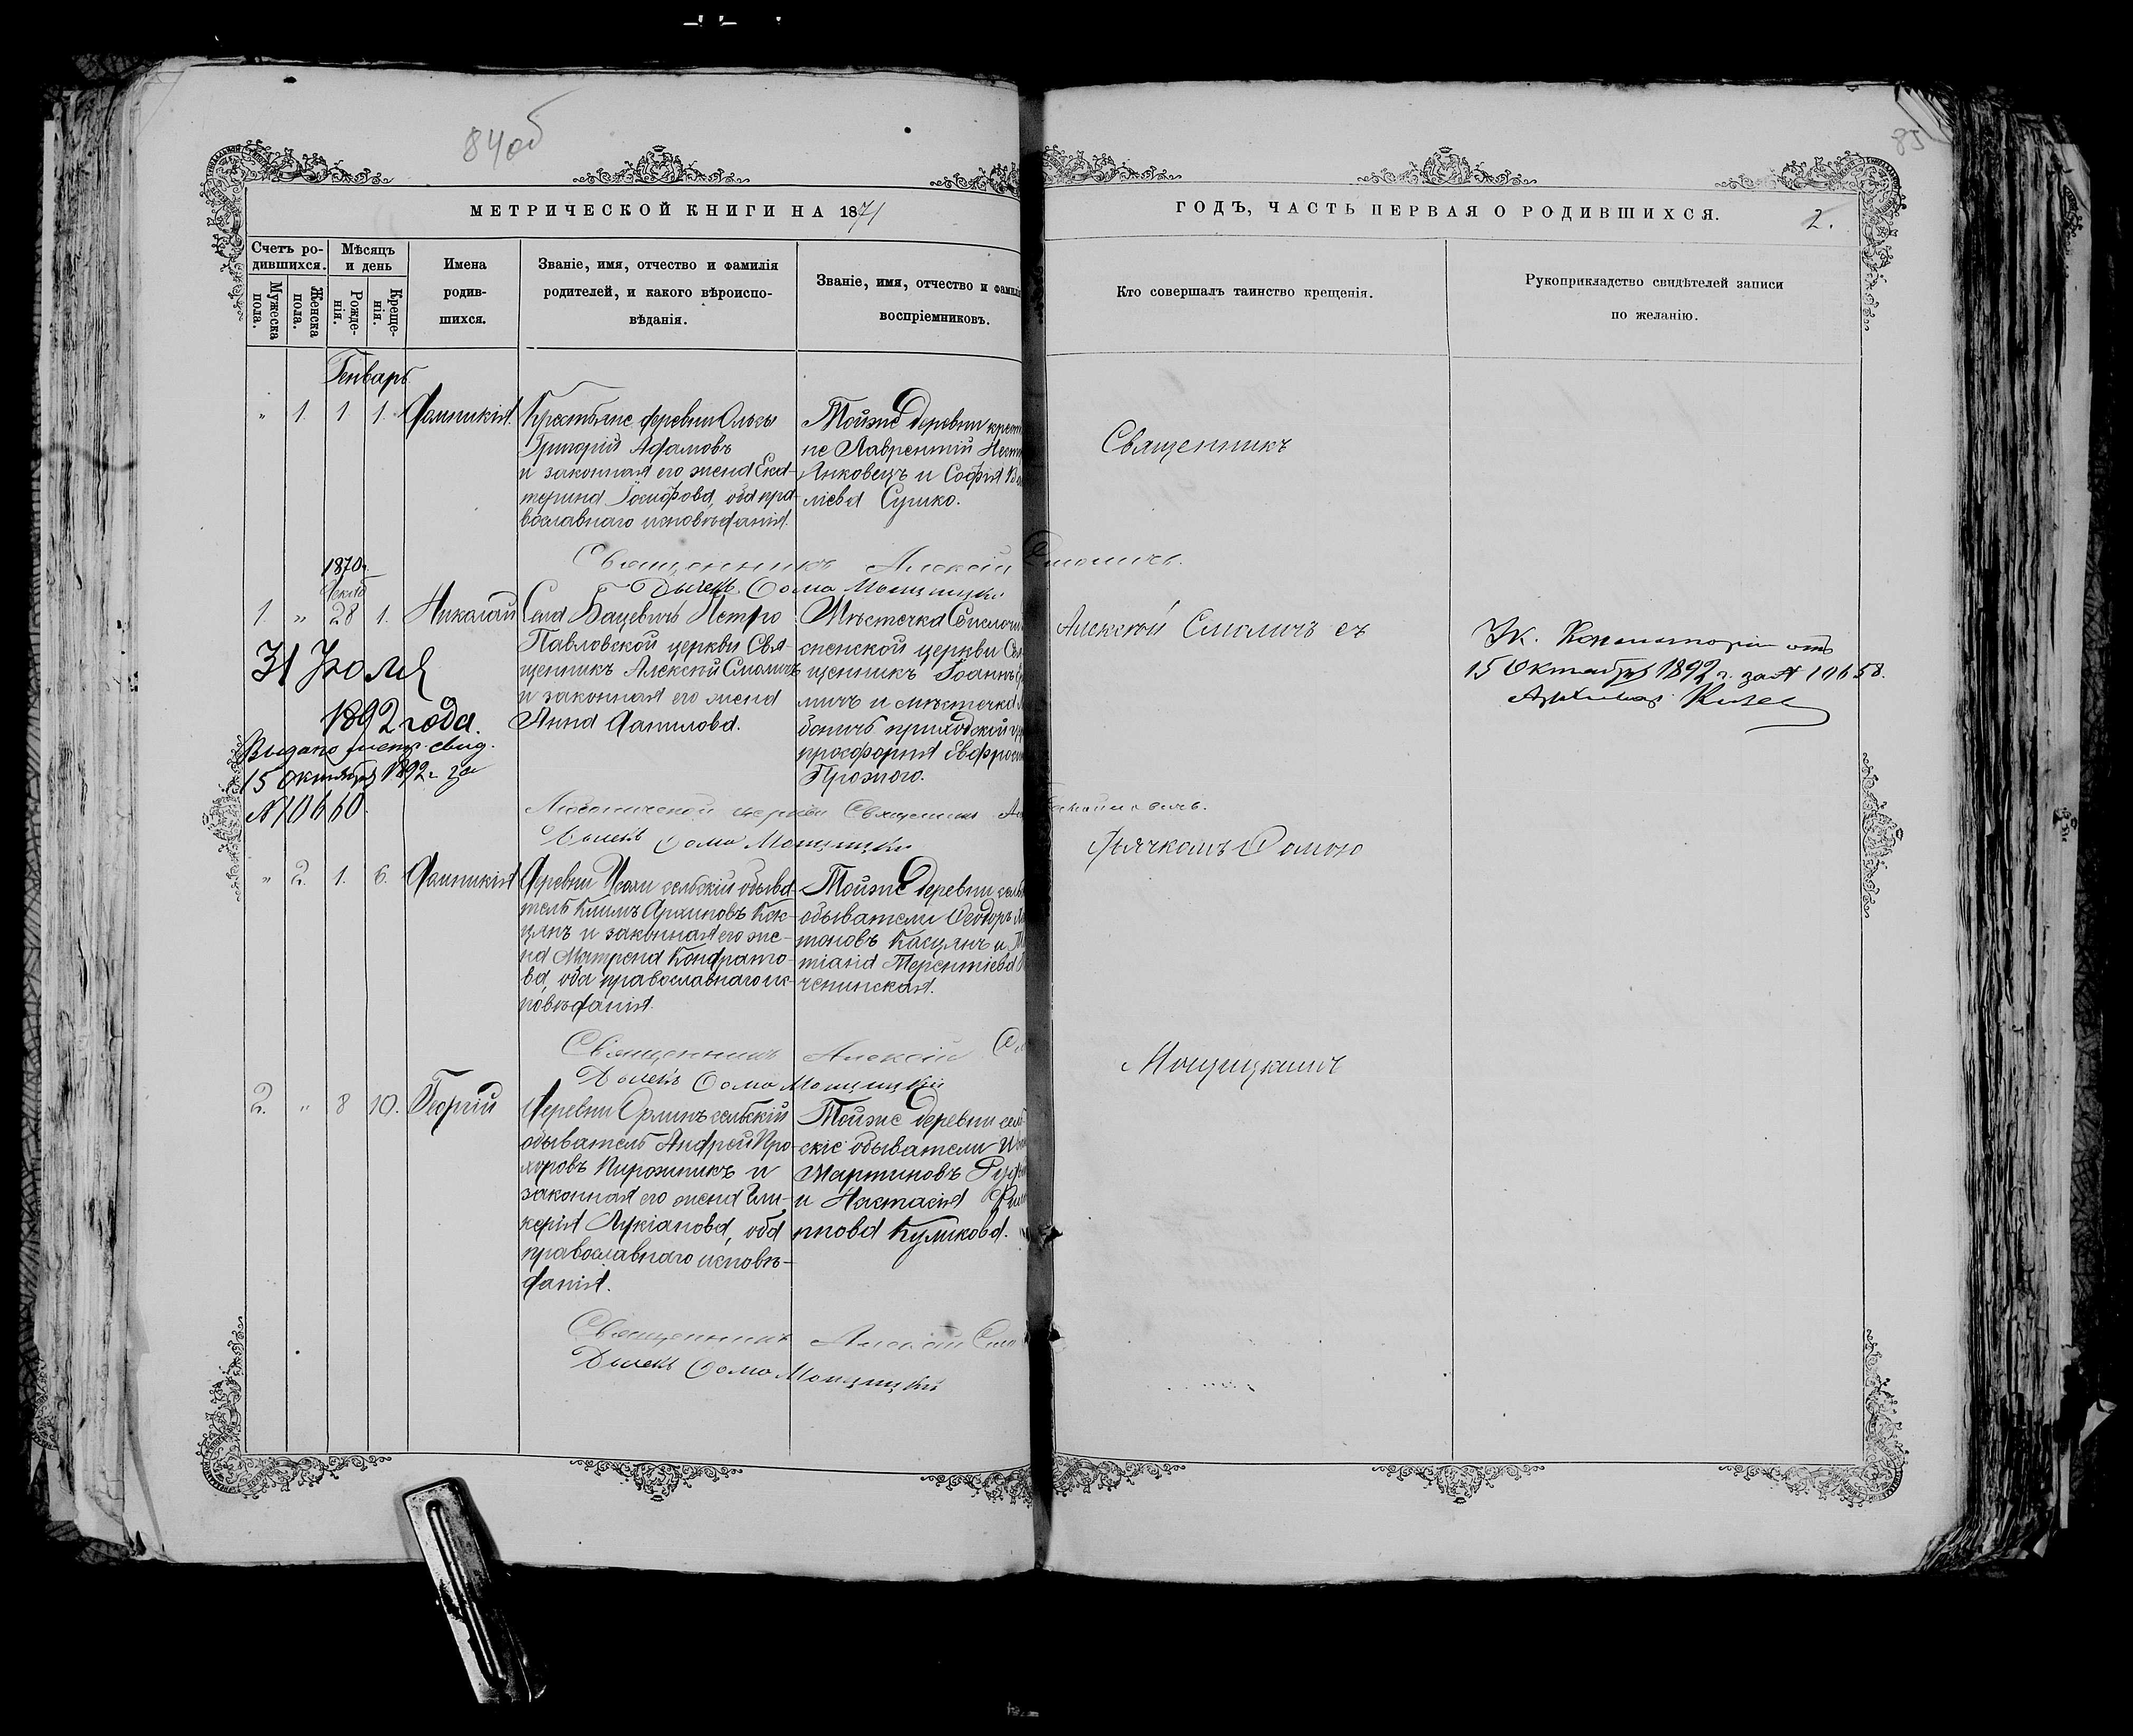 84 об
85
МЕТРИЧЕСКОЙ КНИГИ НА 1871
ГОДЪ, ЧАСТЬ ПЕРВАЯ О РОДИВШИХСЯ.
2.
Счетъ ро-
дившихся.
Мужеска
пола.
Женска
пола.
Мѣсяцъ
и день
Рожде-
нія.
Креще-
нія.
Имена
родив-
шихся.
Званіе, имя, отчество и фамилія
родителей, и какого вѣроиспо-
вѣданія.
Званіе, имя, отчество и фамилі
воспріемниковъ.
Кто совершалъ таинство крещенія.
Рукоприкладство свидѣтелей записи
по желанію.
Генварь
" 1. 1 1. Домникія.
Крестьяне деревни
Григорій Адамовъ
и законная его жена Ека-
терина Іосифова, оба пра-
вославнаго исповѣданія.
Тойже деревни крест
не Лаврентій
Янковецъ и Софія
Сушко.
Священникъ
Священникъ Алексій Смоличъ.
Дьячекъ Ѳома Мощицкій
1870 г.
Декаб
1. " 28 1. Николай
Села Бацевичъ Петро
Павловской церкви Свя-
щенникъ Алексій Смоличъ
и законная его жена
Анна Данилова.
Мѣстечка
спенской церкви Свя
щенникъ Іоаннъ
мичъ и мѣстечка
боничъ приходской
просфорня Евфроси
Грозного.
Алексѣй Смоличъ съ
31 Іюля
1892 года.
Выдано метр. свид.
15 Октября 1892 г. за
№ 10660.
Ук. Консисторіи отъ
15 Октября 1892 г. за № 10658.
Любоничской церкви Священникъ
Дьячекъ Ѳома Мощицкій
Дьячкомъ Ѳомою
" 2. 1. 6. Домникія
Деревни сельскій обыва-
тель Климъ Архиповъ Кас-
цянъ и законная его же-
на Матрена Кондрато-
ва, оба православнаго ис-
повѣданія.
Тойже деревни сель
обыватели Ѳеодоръ
тоновъ Касцянъ и
тіана Терентіева
ченинская.
Священникъ Алексій
Дьячекъ Ѳома Мощицкій
Мощицкимъ
2. " 8 10. Георгій
Деревни Орлинъ сельскій
обыватель Андрей Про-
хоровъ Пирожникъ и
законная его жена Гли-
керія Лукіанова, оба
православнаго исповѣ-
данія.
Тойже деревни сель
скіе обыватели
Мартиновъ
и Настасія
ппова Куликова.
Священникъ Алексій Смо
Дьячекъ Ѳома Мощицкій